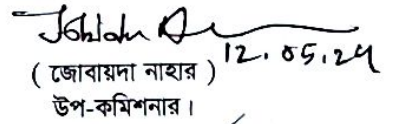 12.05.24
( জোবায়দা নাহার )
উপ-কমিশনার।